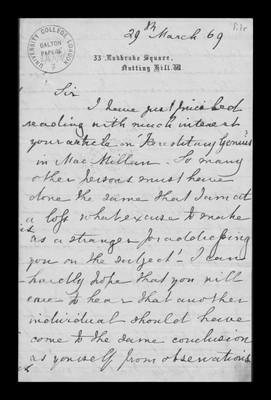 UNIVERSITY COLLEGE LONDON
GALTON
PAPERS
29th March 69
33 Ladbroke Square,
Notting Hill. W
Sir
I have just finished
reading with much interest
your article on "Hereditary Genius"
in MacMillan. So many
other persons must have
done the same that I am at
a loss what excuse to make
as a stranger for addressing
you on the subject! I can
hardly hope that you will
care to hear that another
individual should have
come to the same conclusion
as yourself from observations